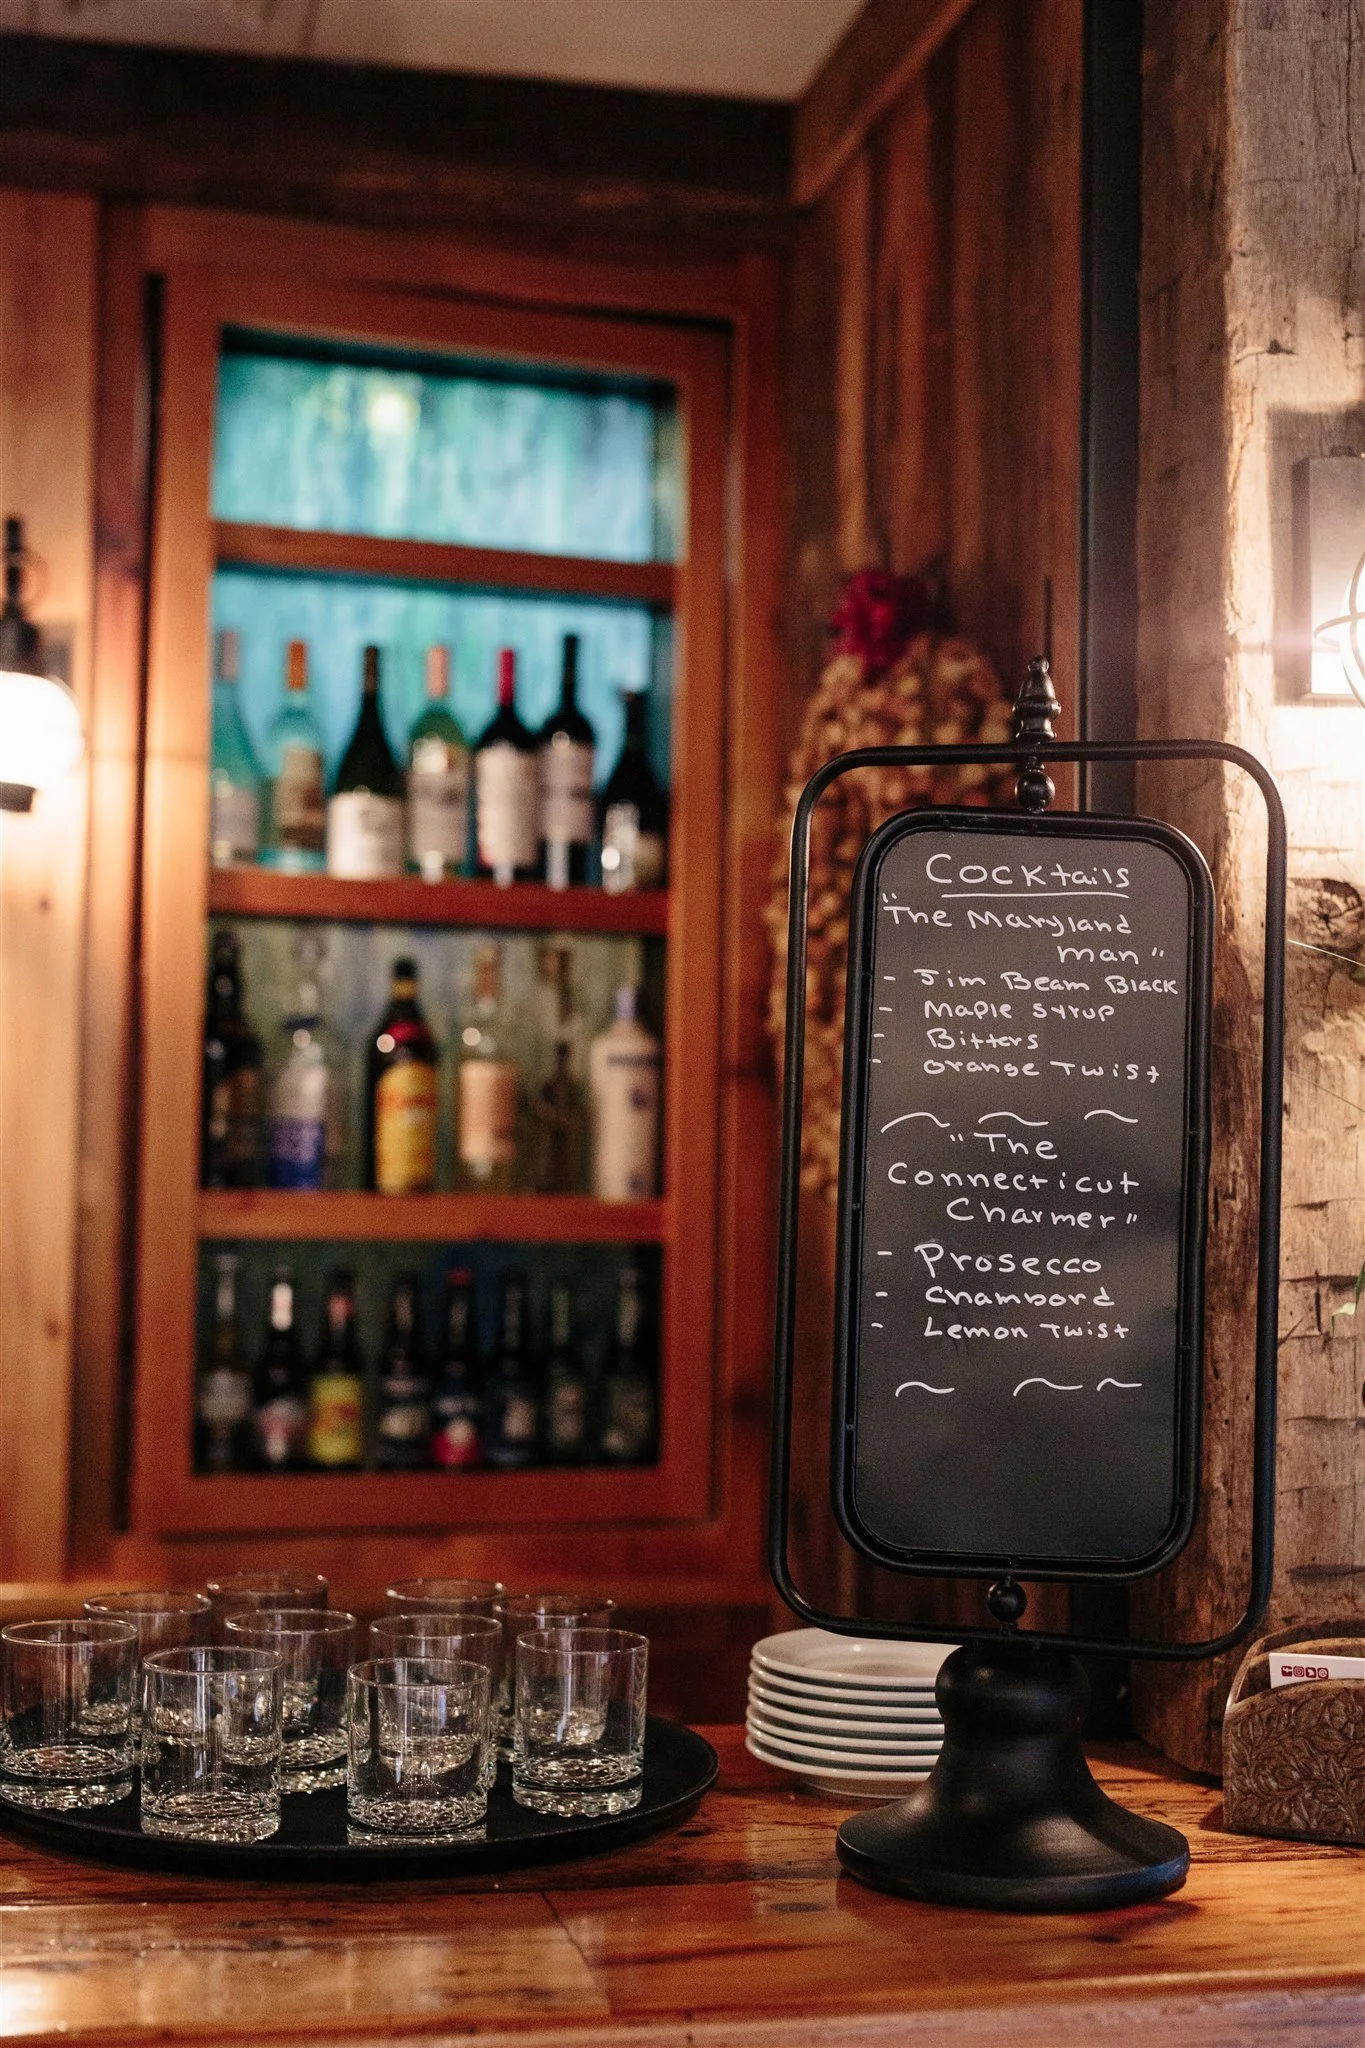 Cocktails
"The Maryland
man"
- Jim Beam Black
- Maple syrup
- Bitters
- orange Twist
"The
Connecticut
Charmer"
- Prosecco
- Chambord
- Lemon Twist